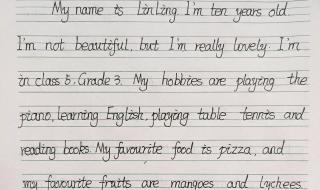 My name is Linling. I'm ten years old.
I'm not beautiful, but I'm really lovely. I'm
in class 5. Grade 3. My hobbies are playing the
piano, learning English, playing table tennis and
reading books. My favourite food is pizza, and
my favourite fruits are mangoes and lychees.